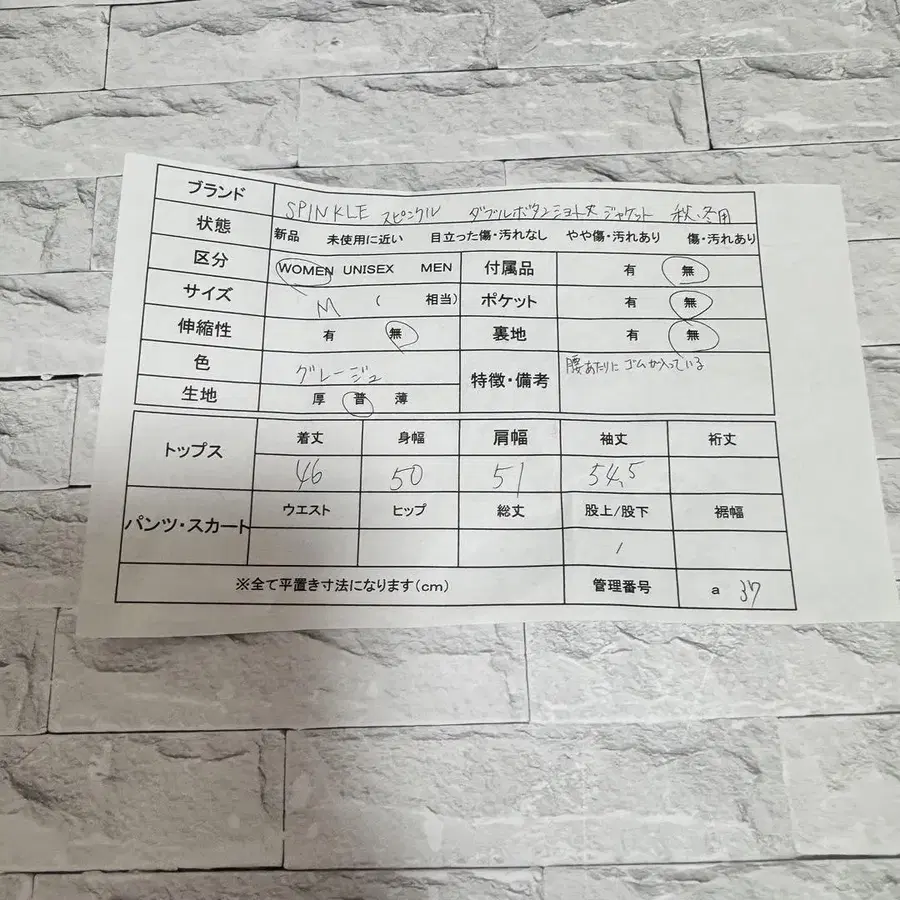 ブランド SPINKLE スピンクル ダブルボタンショート丈ジャケット 秋、冬用
状態 新品 未使用に近い 目立った傷・汚れなし やや傷・汚れあり 傷・汚れあり
区分 WOMEN UNISEX MEN 付属品 有 無
サイズ M ( 相当) ポケット 有 無
伸縮性 有 無 裏地 有 無
色 グレージュ 特徴・備考 腰あたりに ゴムが入っている
生地 厚 普 薄
トップス 着丈 身幅 肩幅 袖丈 裄丈
46 50 51 54.5
パンツ・スカート ウエスト ヒップ 総丈 股上/股下 裾幅
/
※全て平置き寸法になります(cm) 管理番号 a 37